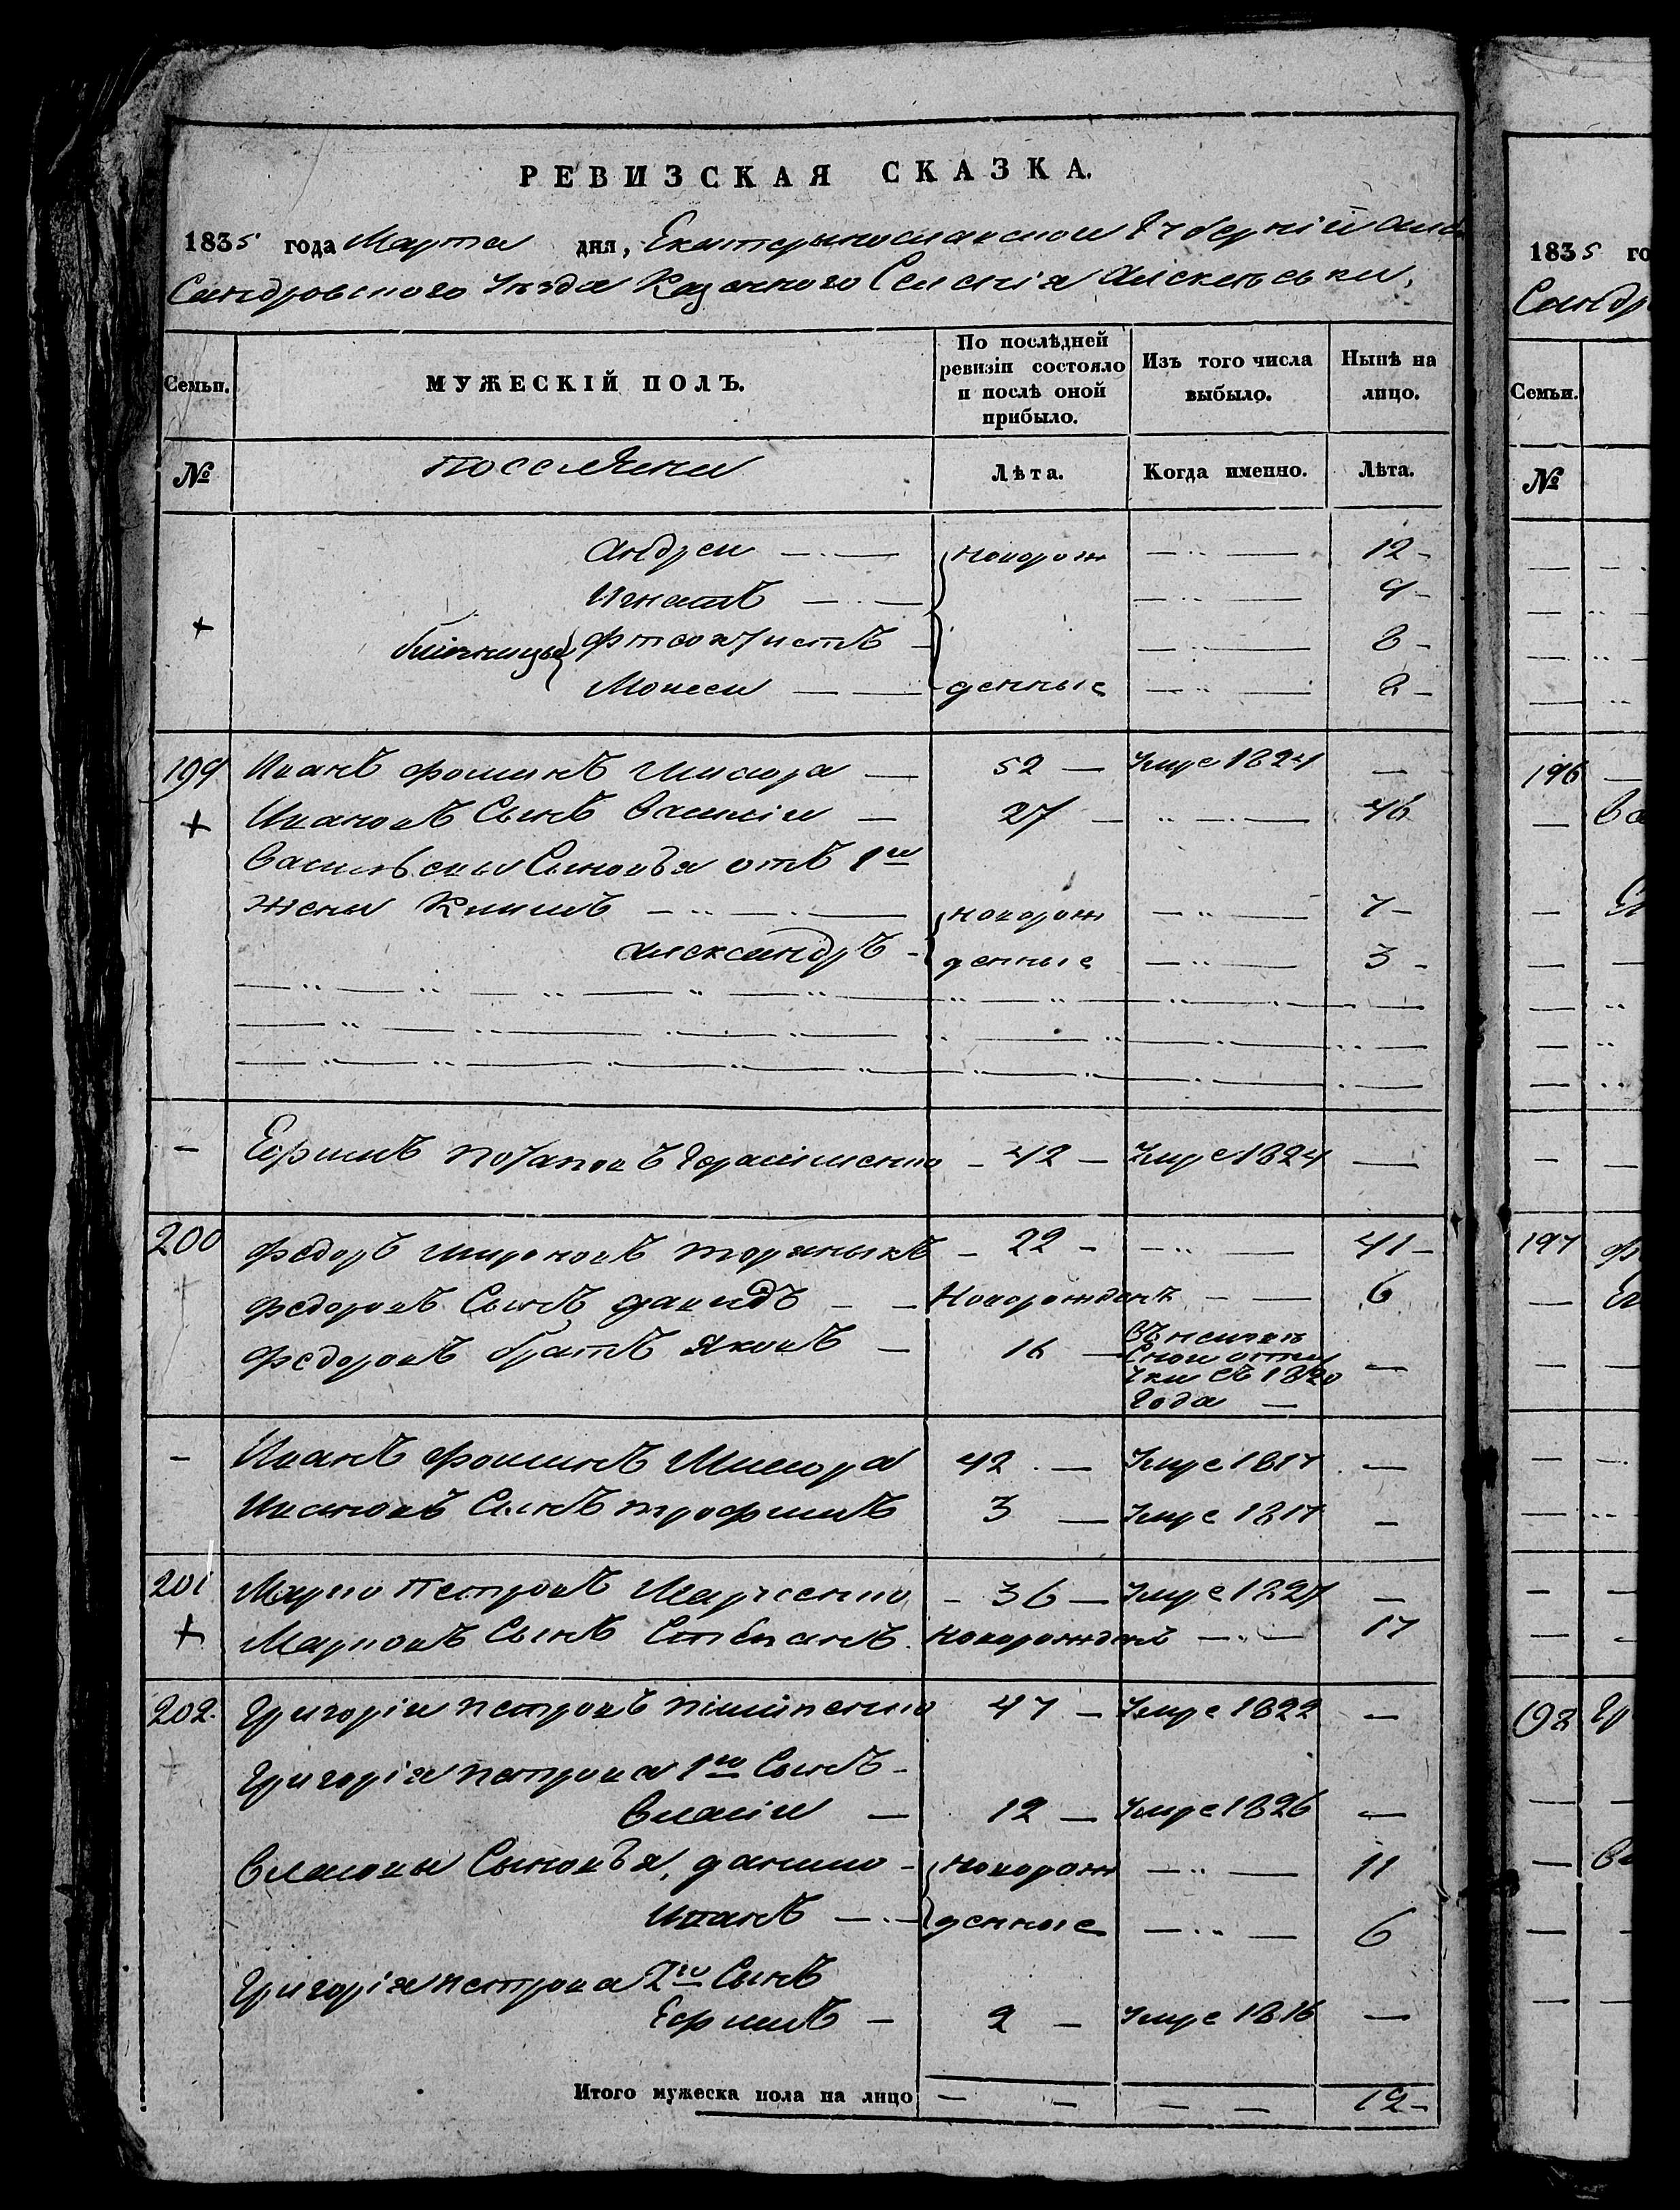 РЕВИЗСКАЯ СКАЗКА.
1835 года Марта дня, Екатериносла⁠вской Губерніи Алек
Сандровского Уезда Казенного Селенія Алексеевки,
Семьи.
МУЖЕСКІЙ ПОЛЪ.
По послѣдней ревизіи состояло и послѣ оной прибыло.
Изъ того числа выбыло.
Нынѣ на лицо.
№
поселяни
Лѣта.
Когда именно.
Лѣта.
Андреи новорож 12
Игнатъ 9
близнецы 8
Моисеи денные 8
199 Иванъ Фоминъ 52 Умре 1824
Ивановъ Сынъ Василіи 27 46
Васильевы Сыновья отъ 1й
жены Климъ новорож 7
Александръ денные 3
Ефимъ Потаповъ Герасименко 42 Умре 1824
200 Федоръ 22 41
Федоровъ Сынъ давидъ Новорожденъ 6
Федоровъ братъ Яковъ 16 Въ неизвѣ
Сной отлу
чки съ 1820
Года
Иванъ Фоминъ 42 Умре 1817
Ивановъ Сынъ трофимъ 3 Умре 1817
201 Марко Петровъ Марченко 36 Умре 1827
Марковъ Сынъ Степанъ Новорожденъ 17
202. Григоріи Петровъ Пилипенко 47 Умре 1822
Григорія Петрова 1й Сынъ
Власіи 12 Умре 1826
Власовы Сыновья, данило новорож 11
Иванъ денные 6
Григорія Петрова 2й Сынъ
Ефимъ 2 Умре 1816
Итого мужеска пола на лицо 12
1835 го
Сандр
Семьи.
№
196
197
198 Гр